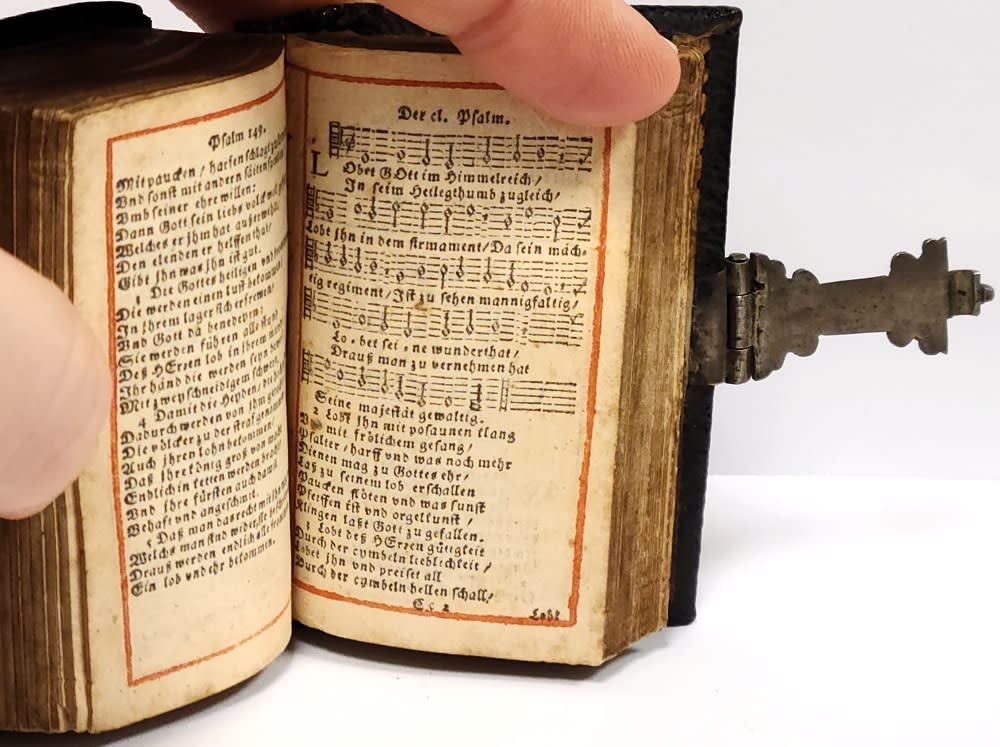 Psalm 149.
Mit paucken / harfen schlagt
Vnd sonst mit andern säiten
Vmb seiner ehre willen:
Dann Gott sein liebs volck
Welches er jhm hat außerwehlt
Den elenden er helffen that /
Gibt jhn was jhn ist gut.
3 Die Gottes heiligen vnd
Die werden einen lust bekommen /
In jhrem lager sich erfrewen /
Vnd Gott da benedeyen:
Sie werden führen alle stund
Deß HErren lob in jhrem mund
Ihr händ die werden seyn
Mit zweyschneidigem schwert
4 Damit die Heyden / die
Dadurch werden von jhm
Die völcker zu der straf
Auch jhren lohn bekommen /
Daß jhre könig groß von
Endlich in ketten werden bracht
Vnd jhre fürsten auch damit
Behaft vnd angeschmit.
5 Daß man das recht mit
Welchs man find
Drauß werden endlich alle
Ein lob vnd ehr bekommen.
Der cl. Psalm.
LObet GOtt im Himmelreich /
In seim Heilegthumb zugleich /
Lobt jhn in dem firmament / Da sein mäch-
tig regiment / Ist zu sehen mannigfaltig /
Lo-bet sei-ne wunderthat /
Drauß man zu vernehmen hat
Seine majestät gewaltig.
2 Lobt jhn mit posaunen klang
Vnd mit frölichem gesang /
Psalter / harff vnd was noch mehr
Dienen mag zu Gottes ehr /
Laß zu seinem lob erschallen
Paucken flöten vnd was sunst
Pfeiffen ist vnd orgelkunst /
Klingen laßt Gott zu gefallen.
3 Lobt deß HErren gütigkeit
Durch der cymbeln lieblichkeit /
Lobet jhn vnd preiset all
Durch der cymbeln hellen schall /
Cc 2
Lobt